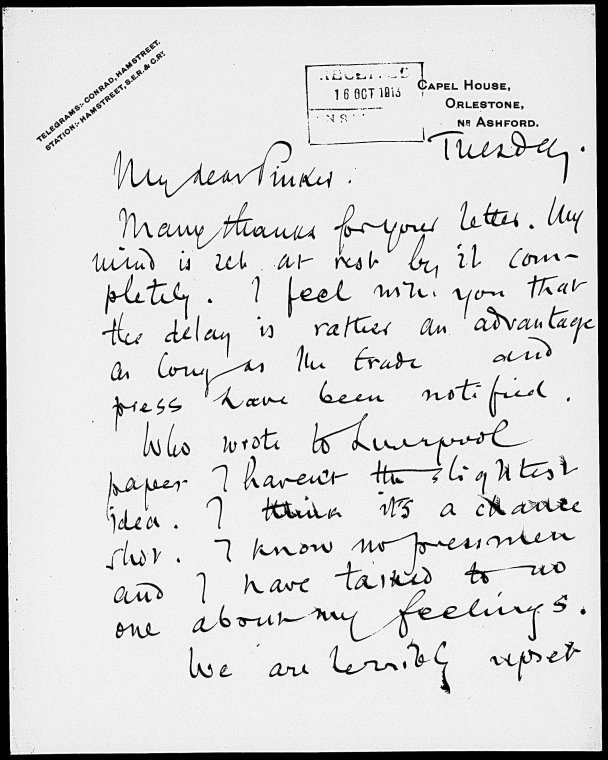 TELEGRAMS:- CONRAD, HAMSTREET.
STATION:- HAMSTREET, S.E.R. & C.RY.
RECEIVED
16 OCT 1913
CAPEL HOUSE,
ORLESTONE,
NR ASHFORD.
Tuesday.
My dear Pinker.
Many thanks for your letter. My
mind is set at rest by it com-
pletely. I feel with you that
the delay is rather an advantage
as long as the trade and
press have been notified.
Who wrote to Liverpool
paper I haven't the slightest
idea. I think it's a chance
shot. I know no pressmen
and I have talked to no
one about my feelings.
We are terribly upset